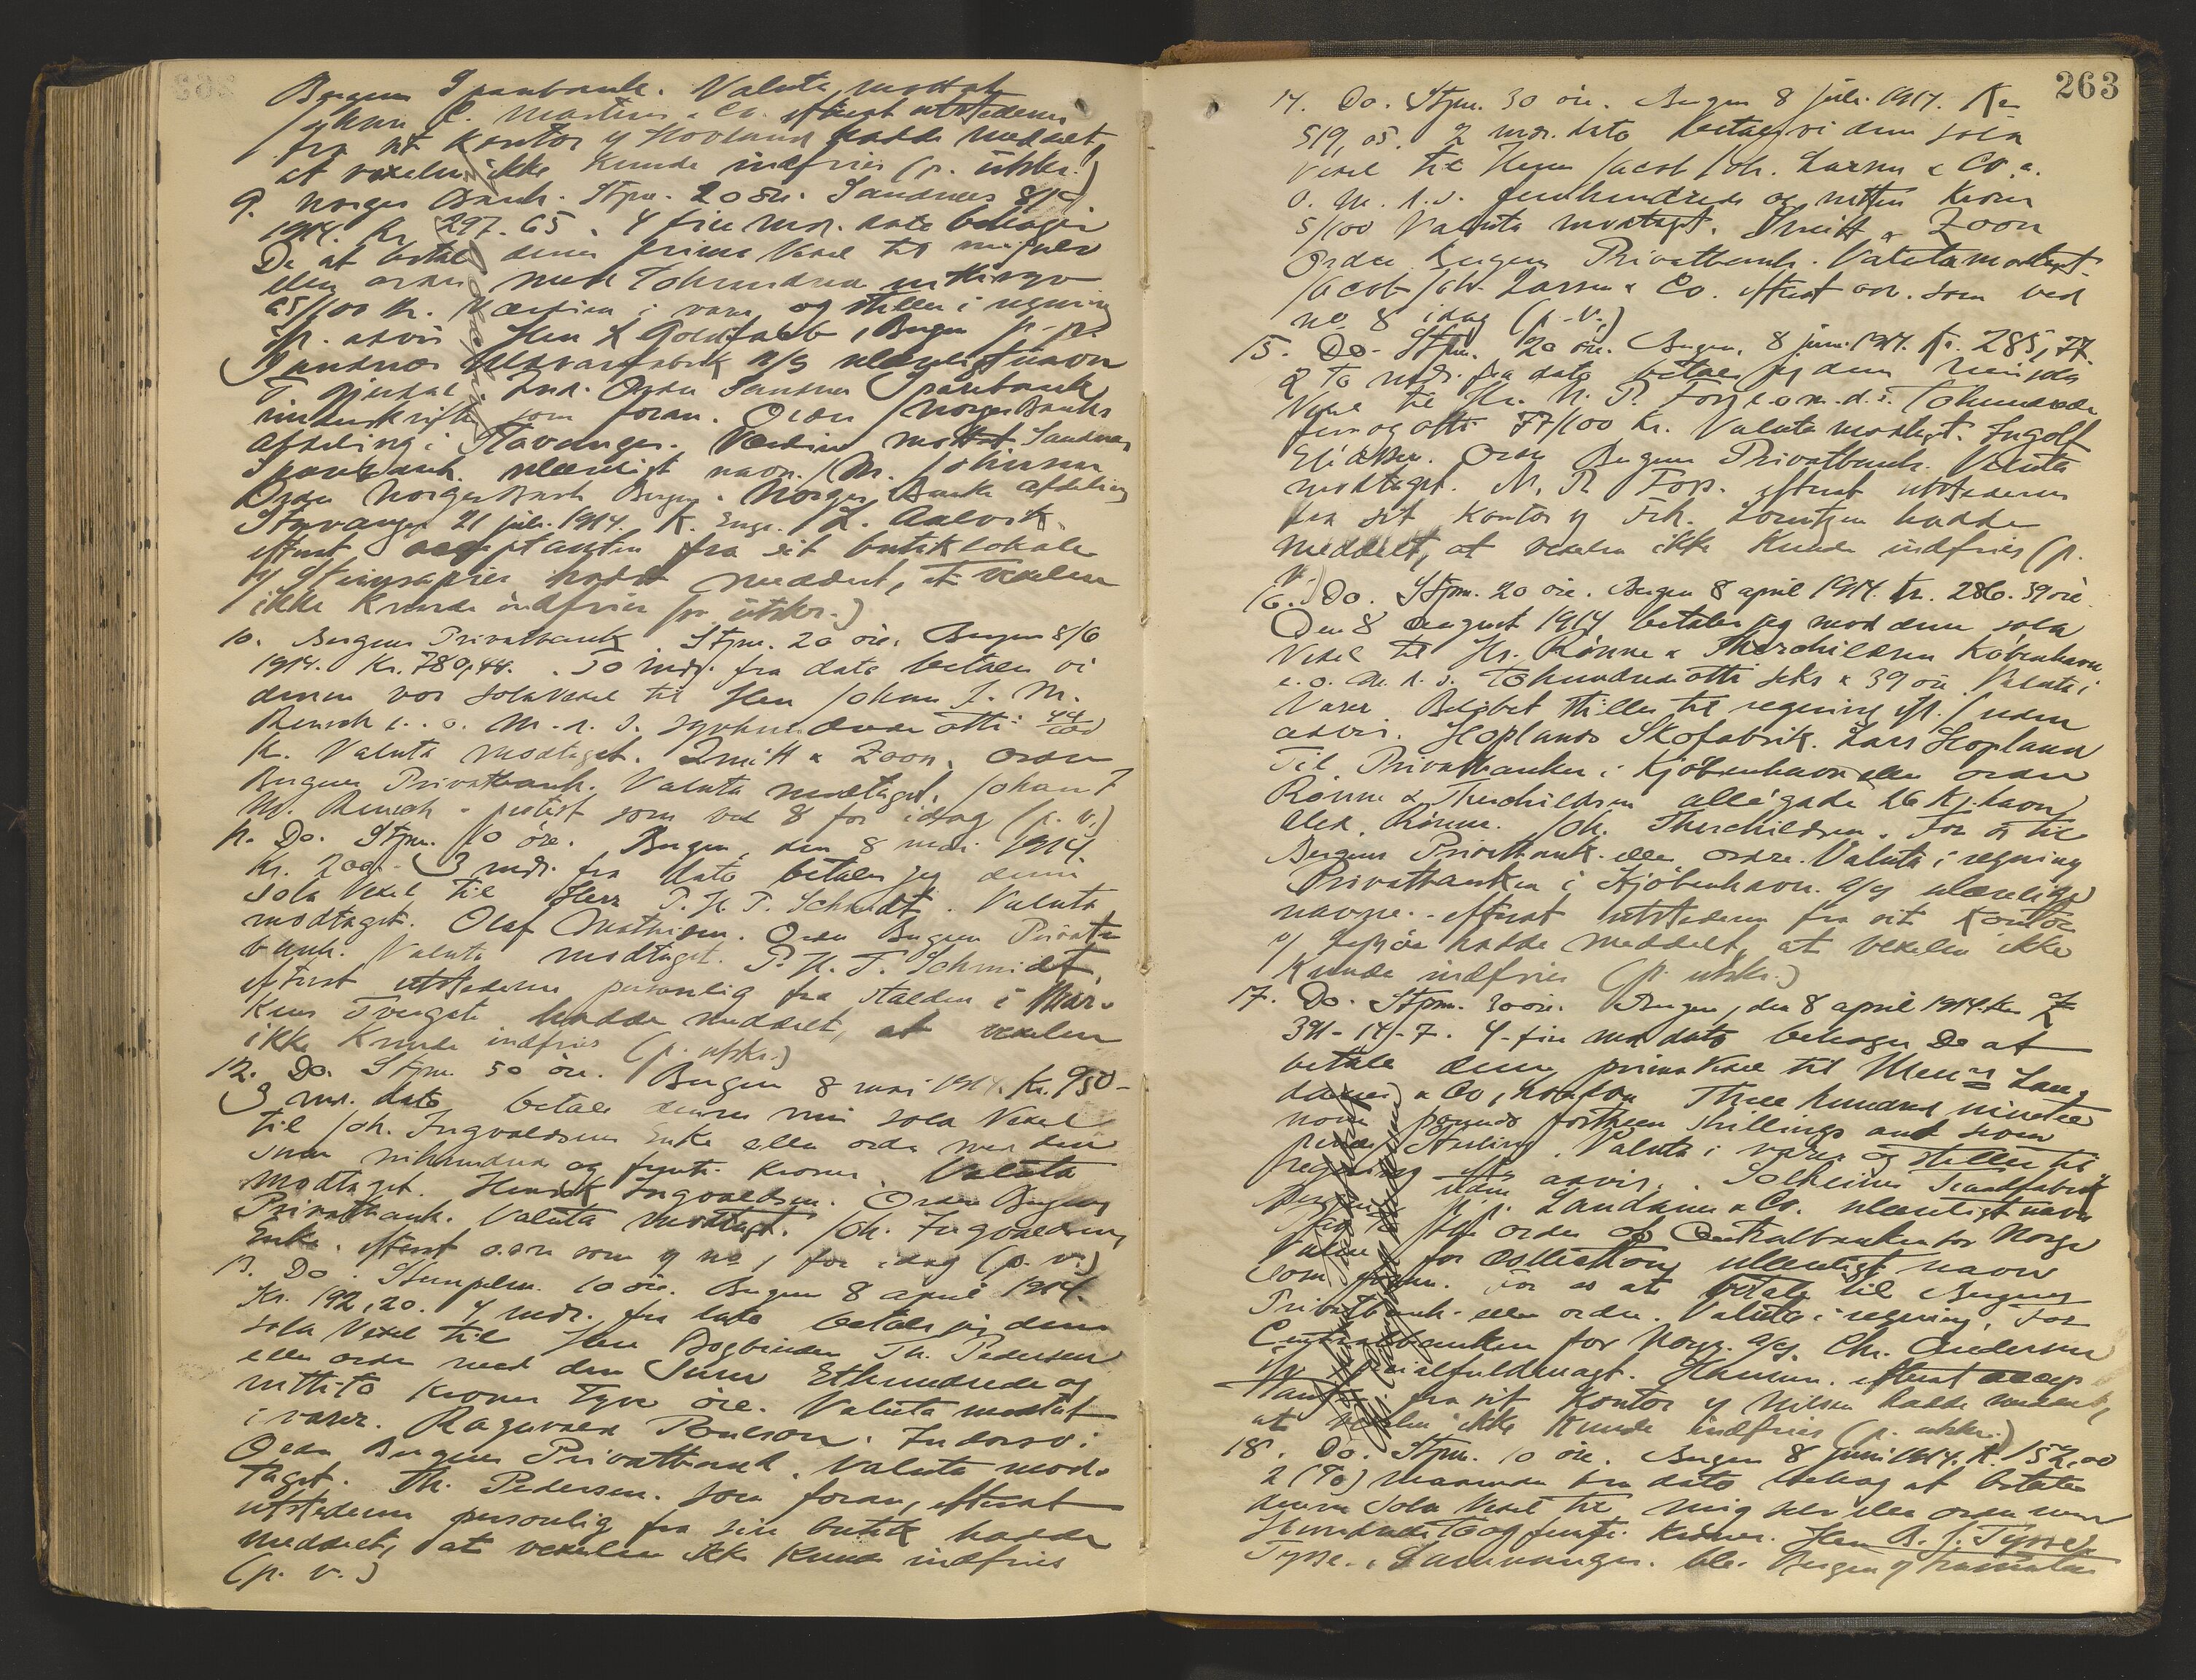 Bergens Sparebank. Valuta mottat
Johan C. Martens & Co. efterat utstederne
fra sit kontor v/ Hovland hadde meddelt,
at vexelen ikke kunde indfries (p. utskr.)
9. Norges Bank. Stpm. 20 öre. Sandnes 8/4
1914. Kr. 297.65. 4 fire mdr. dato behager
De at betale denne prima Vexel til mig selv
eller ordre med Tohundrede nittisyv
65/100 Kr. Værdien i varer og stilles i regning
ifl. advis Herr Goldfarb, Bergen p. p.
Sandnes Uldvarefabrik A/S ulæseligt navn
Ordre Sandnes Sparebank
som foran. Ordre Norges Banks
Afdeling i Stavanger. Værdien mottat Sandnes
Sparebank. ulæseligt navn. M. Johnsen
Ordre Norges Bank Bergen. Norges Banks Afdeling
Stavanger 21 juli 1914. K. Enge. L. Aalvik.
efterat acceptanten fra sit butiklokale
hadde meddelt, at vexelen
ikke kunde indfries (p. utskr.)
10. Bergens Privatbank. Stpm. 20 öre. Bergen 8/6
1914. Kr. 780,44. To mdr. fra dato betaler vi
denne vor solavexel til Herr Johan F. M.
Rensch e. o. m. d. s. syvhundrede otti 44/100
Kr. Valuta modtaget. Smitt & Zoon. Ordre
Bergens Privatbank. Valuta modtaget. Johan F.
M. Rensch - protest som ved 8 for idag (p. v.)
11. Do. Stpm. 10 öre. Bergen, den 8 mai 1914.
Kr. 200.- 3 mdr. fra dato betaler jeg denne
sola Vexel til Herr P. H. T. Schmidt. Valuta
modtaget. Olaf Mathisen. Ordre Bergens Privat-
bank. Valuta modtaget. P. H. T. Schmidt,
efterat utstederen personlig fra stalden i Mar-
kens Tvergate hadde meddelt, at vexelen
ikke kunde indfries (p. utskr.)
12. Do. Stpm. 50 öre. Bergen 8 mai 1914. Kr. 950-
3 mdr. dato betales denne min sola Vexel
til Joh. Ingvaldsens Enke eller ordre med den
sum nihundrede og femti kroner. Valuta
modtaget. Henrik Ingvaldsen. Ordre Bergens
Privatbank. Valuta modtaget. Joh. Ingvaldsens
Enke. efterat o.s.v. som v/ no 1 for idag (p. v.)
13. Do. Stempelm. 10 öre. Bergen 8 april 1914.
Kr. 192,20. 4 mdr. fra dato betaler jeg denne
sola Vexel til Herr Bogbinder Th. Pedersen
eller ordre med den Sum Ethundrede og
nitti-to Kroner Tyve öre. Valuta mottat
i varer. Ragnvald Poulson. Indorso:
Ordre Bergens Privatbank. Valuta mod-
taget. Th. Pedersen. som foran, efterat
utstederen personlig fra sin butik hadde
meddelt, at vexelen ikke kunde indfries
(p. v.)
263
14. Do. Stpm. 30 öre. Bergen 8 juli 1914. Kr.
519,05. 2 mdr. dato betaler vi denne sola
Vexel til Herrer Jacob Joh. Larsen & Co. e.
o. m. d. s. femhundrede og nitten Kroner
5/100 Valuta modtaget. Smitt & Zoon
Ordre Bergens Privatbank. Valuta modtaget.
Jacob Joh. Larsen & Co. efterat o.s.v. som ved
no 8 idag (p. v.)
15. Do. Stpm. 20 öre. Bergen, 8 juni 1914. Kr. 285,77.
2 To mdr. fra dato betaler jeg denne min sola
Vexel til Hr. N. R. Foss e. o. m. d. s. Tohundrede
fem og otti 77/100 Kr. Valuta modtaget. Ingolf
Eliassen. Ordre Bergens Privatbank. Valuta
modtaget. N. R. Foss. efterat utstederen
fra sit kontor v/ Frk. Lorentzen hadde
meddelt, at vexelen ikke kunde indfries (p.
v.)
16. Do. Stpm. 20 öre. Bergen 8 april 1914. Kr. 286.39 öre.
Den 8 august 1914 betaler jeg mod denne sola
Vexel til Hr. Rönne & Therchildsen Köbenhavn
e. o. m. d. s. Tohundrede otti seks & 39 öre. Valuta i
Varer. Belöbet stilles til regning ifl. /uden
advis. Hoplands Skofabrik. Lars Hopland
Til Privatbanken i Kjöbenhavn eller ordre
Rönne & Therchildsen allégade 26 Kj.havn
Alex. Rönne. Joh. Therchildsen. For os til
Bergens Privatbank eller ordre. Valuta i regning
Privatbanken i Kjöbenhavn. A/S ulæselige
navne. - efterat utstederen fra sit kontor
v/ hadde meddelt, at vexelen ikke
kunde indfries (p. utskr.)
17. Do. Stpm. öre. Bergen, den 8 april 1914. for £
391-14-7. 4-fire mdr. dato behager De at
betale denne prima Vexel til Messrs Lan-
& Co, London Three hundred ninetee
none pounds forthteen shillings and seven
pence Sterling. Valuta i varer og stilles til
regning efter advis. Solheims Traadfabrik
p. p. Landmann & Co. ulæseligt navn
the order of Centralbanken for Norge
Value for collection ulæseligt navn
som foran. For os at betale til Bergens
Privatbank eller ordre. Valuta i regning. For
Centralbanken for Norge. A/S. Chr. Andersen
ifl. specialfuldmagt. Hansen. efterat accep-
tanten fra sit kontor v/ Nilsen hadde meddelt,
at vexelen ikke kunde indfries (p. utskr.)
18. Do. Stpm. 10 öre. Bergen 8 juni 1914. Kr. 152,00
2 (To) maaneder fra dato behag at betale
denne sola Vexel til mig selv eller ordre med
Hundrede to og femti kroner. Herr B. J. Tysse
Tysse. Samnanger.